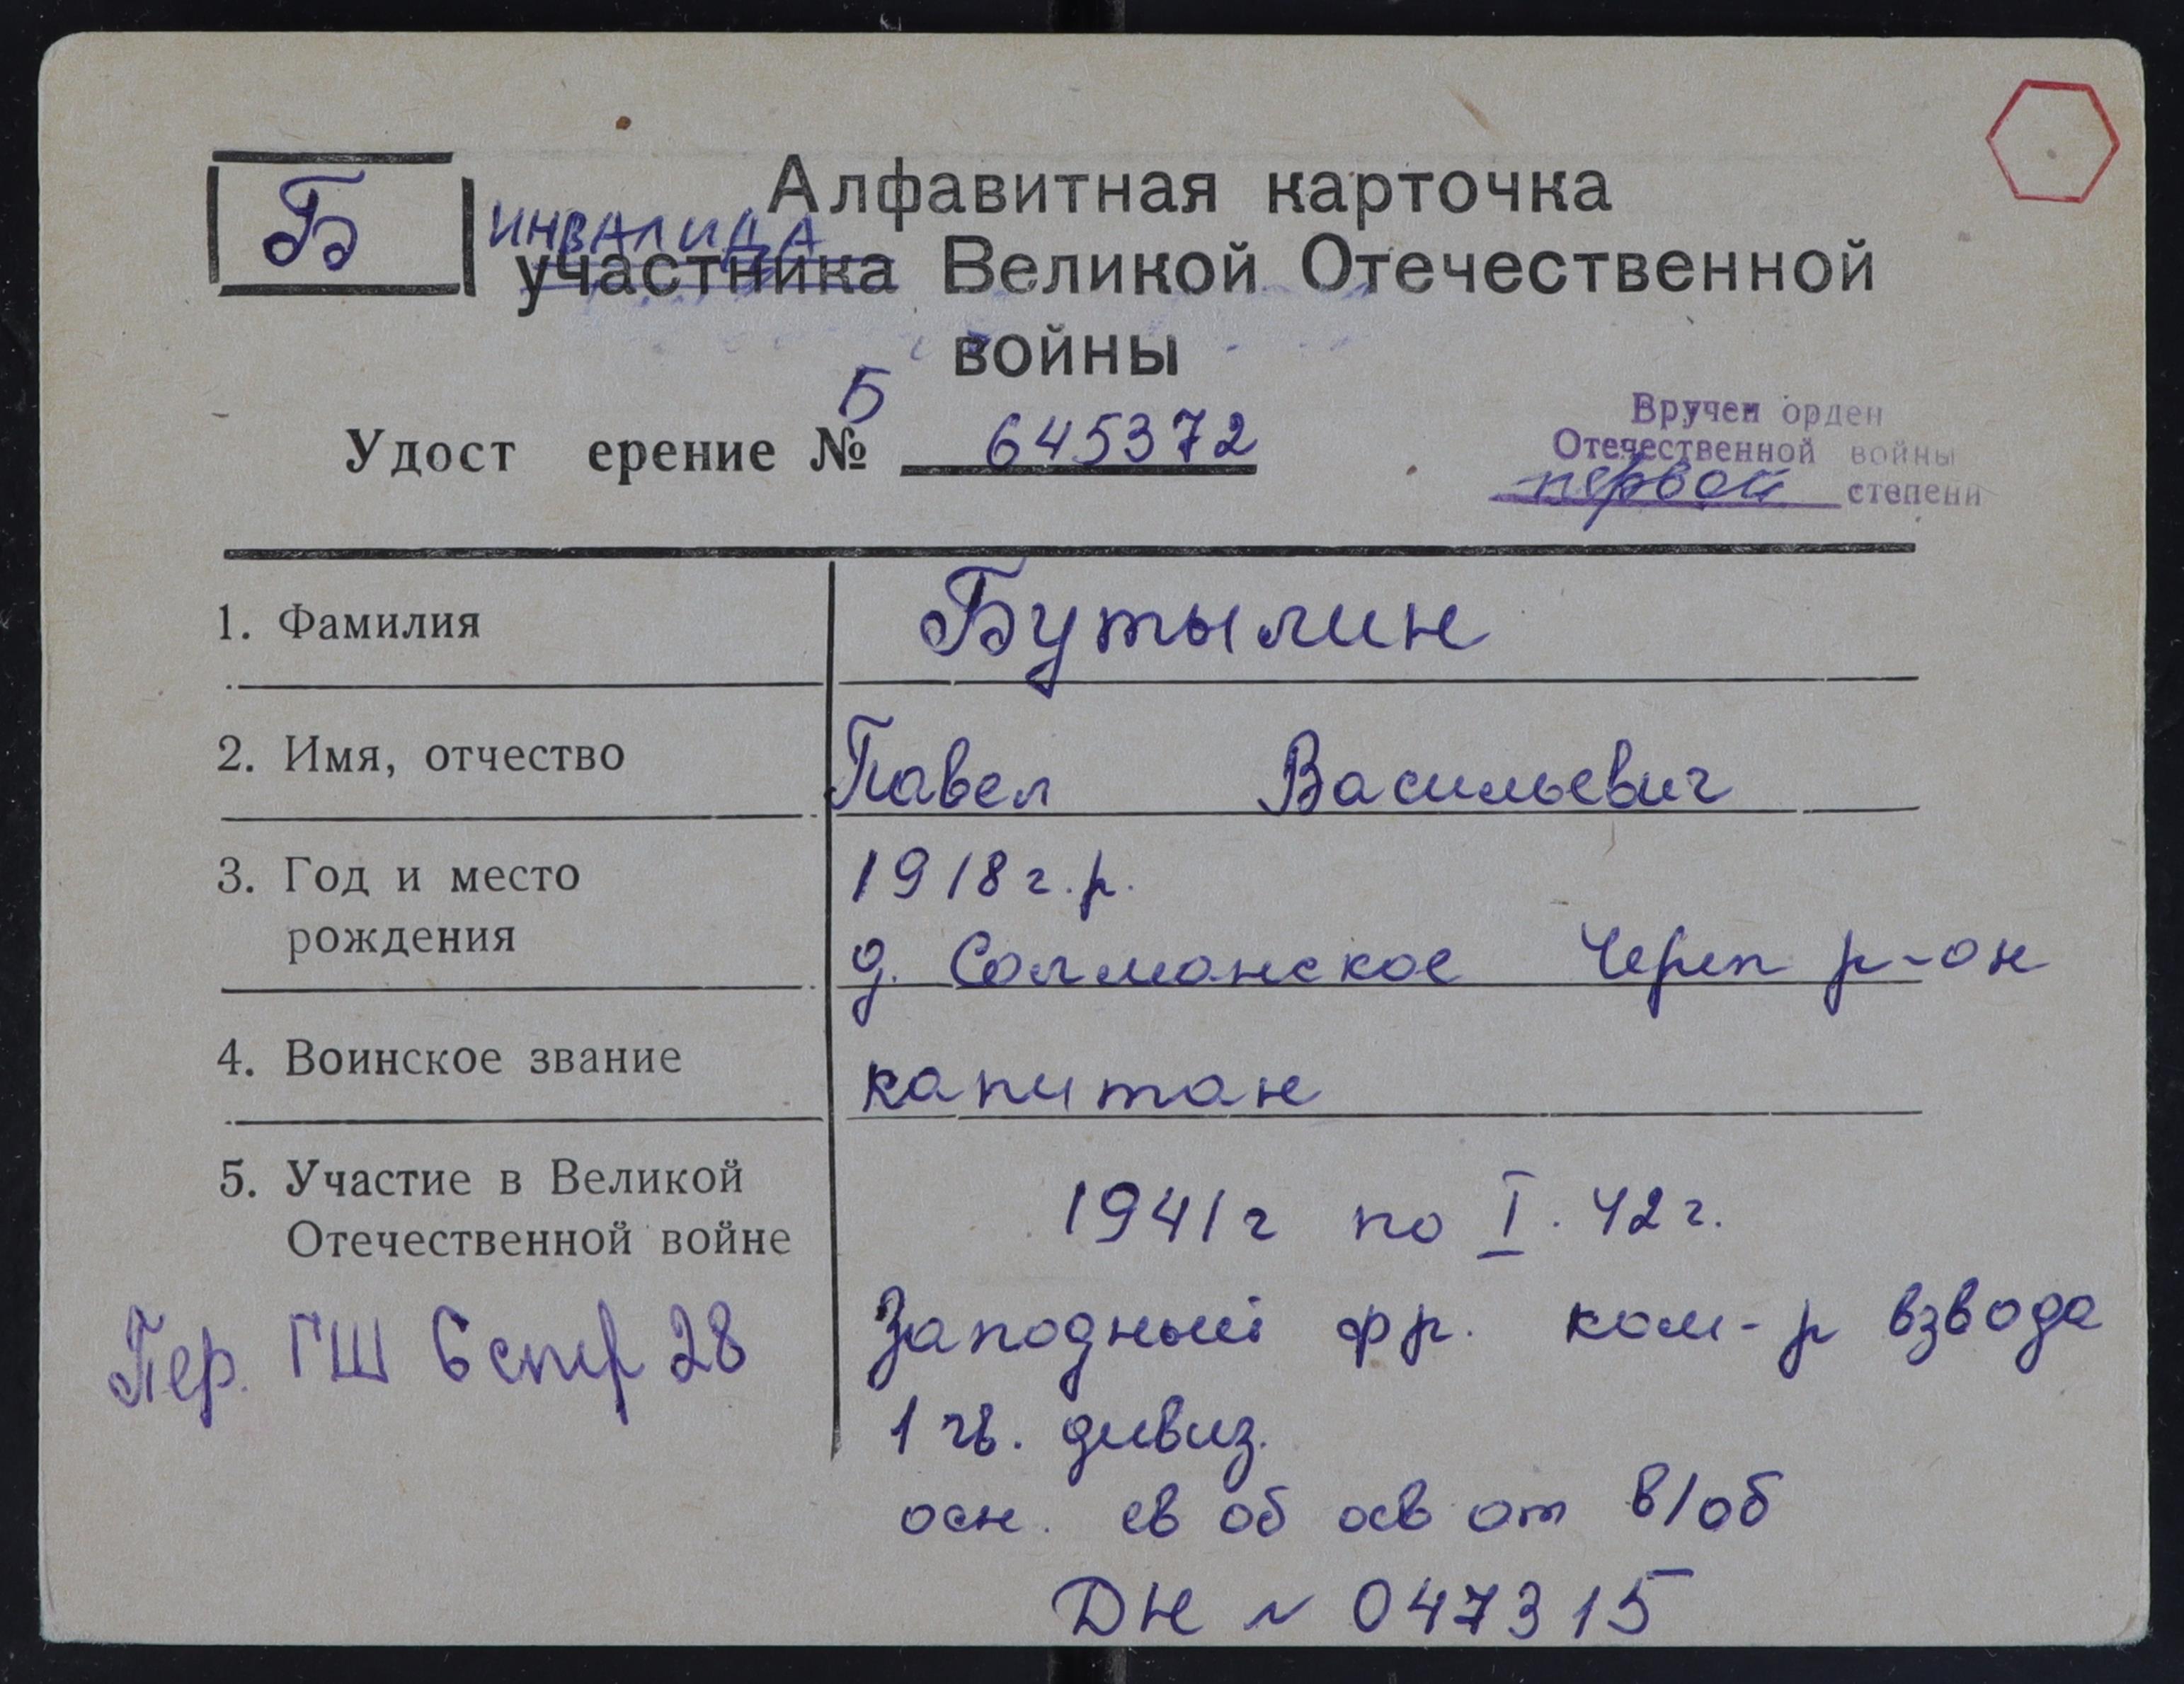 Б
Алфавитная карточка
инвалида
участника Великой Отечественной
войны
Удост ерение № Б 645372
Вручен орден
Отечественной войны
первой степени
1. Фамилия Бутылин
2. Имя, отчество Павел Васильевич
3. Год и место 1918 г.р.
рождения д. Солманское Череп р-он
4. Воинское звание капитан
5. Участие в Великой 1941 г по I. 42 г.
Отечественной войне
Западный фр. ком-р взвода
Пер. ГШ 6 стр 28
1 гв. дивиз.
осн. св об осв от в/об
ДН № 047315